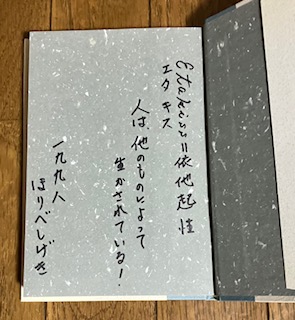 Etakiss=依他起性
エタキス
人は、他のものによって
生かされている!
一九九八
ほりべしげき